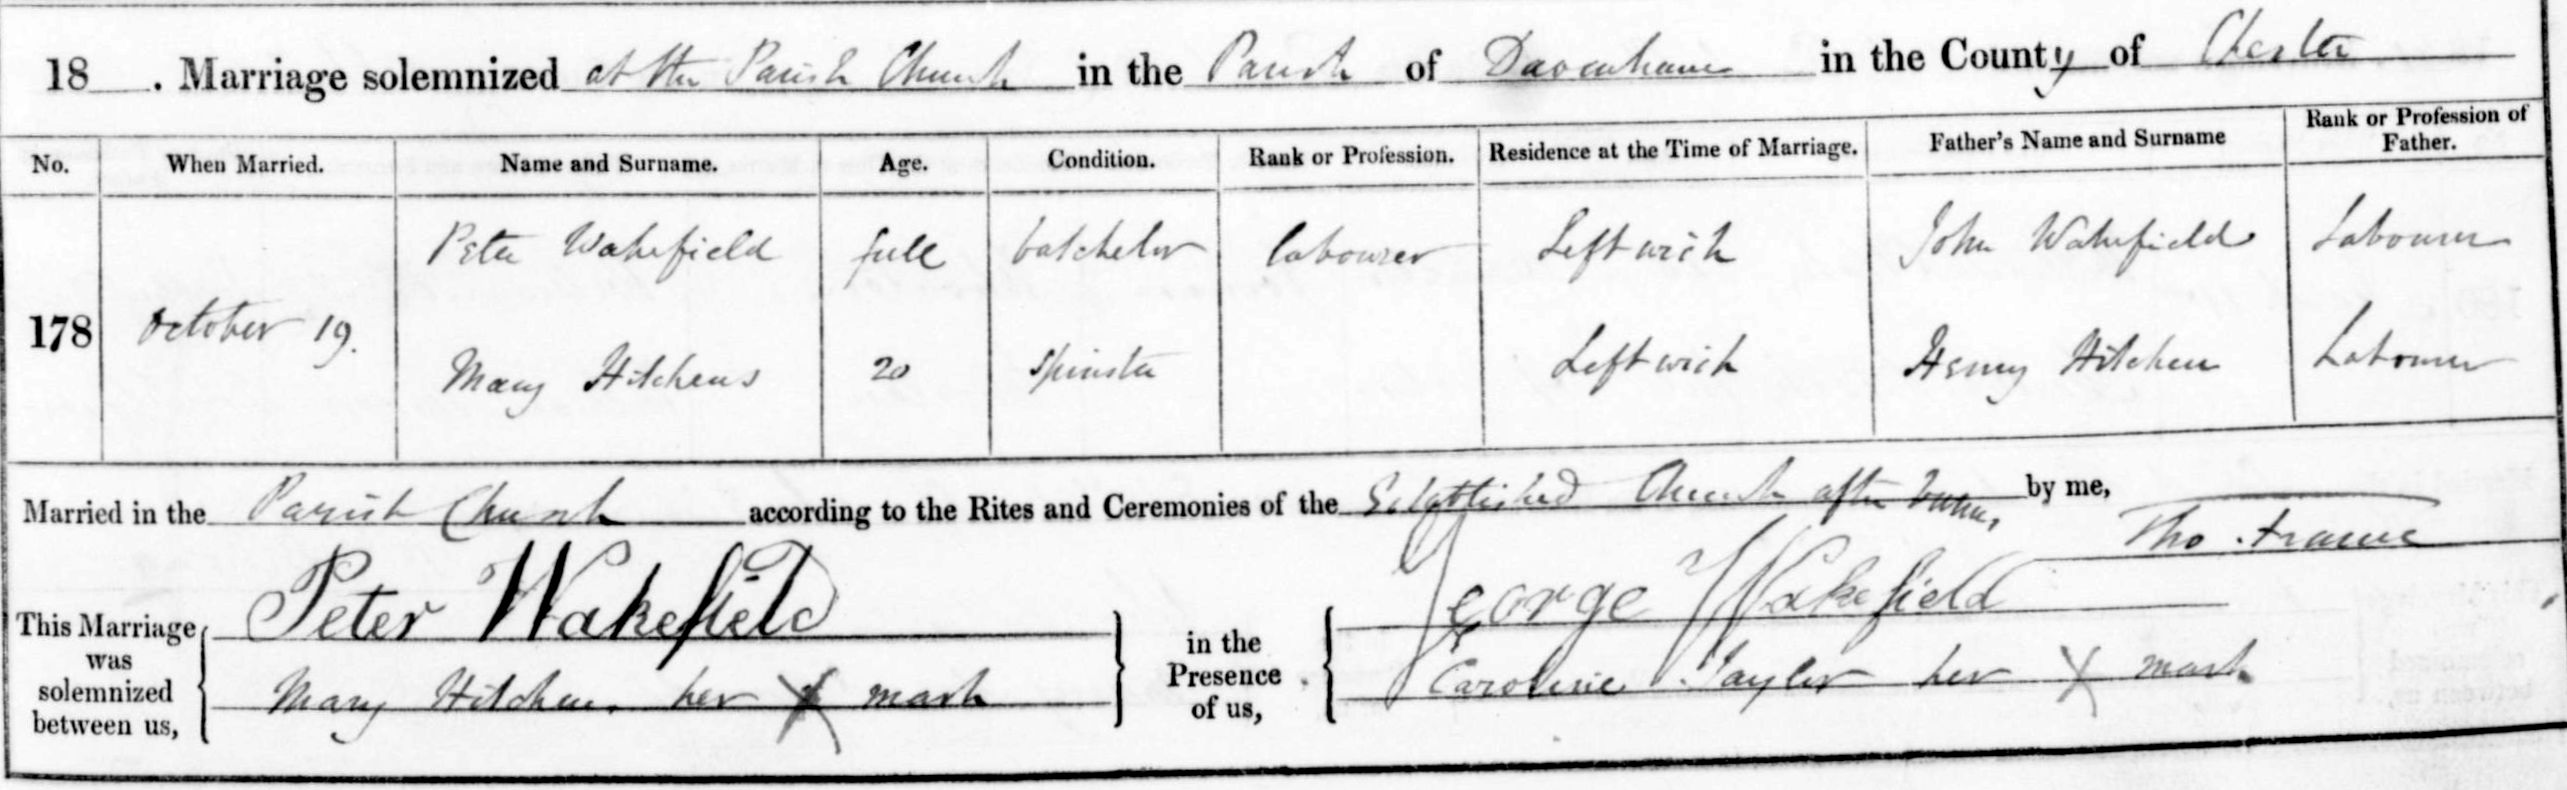 18 . Marriage solemnized at the Parish Church in the Parish of Davenham in the County of Chester
No. When Married. Name and Surname. Age. Condition. Rank or Profession. Residence at the Time of Marriage. Father's Name and Surname Rank or Profession of Father.
Peter Wakefield full batchelor labourer Leftwich John Wakefield Labourer
178 October 19.
Mary Hitchens 20 Spinster Leftwich Henry Hitchen Labourer
Married in the Parish Church according to the Rites and Ceremonies of the Established Church after banns, by me,
Tho. France
This Marriage was solemnized between us, Peter Wakefield in the Presence of us, George Wakefield
Mary Hitchen, her X mark Caroline Tayler her X mark